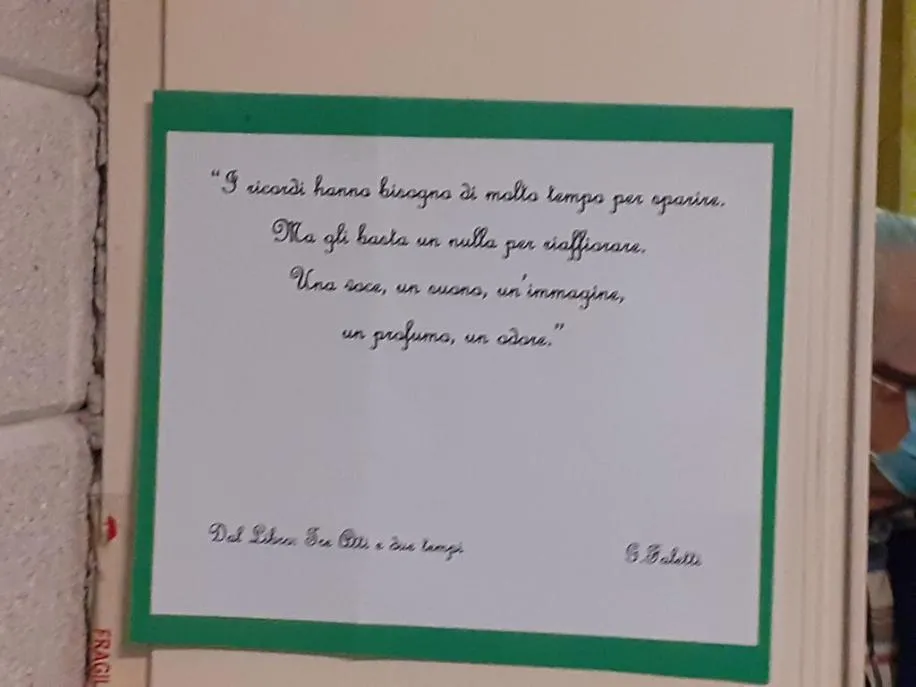 “I ricordi hanno bisogno di molto tempo per sparire.
Ma gli basta un nulla per riaffiorare.
Una voce, un suono, un'immagine,
un profumo, un odore.”
Dal Libro: Tre Atti e due tempi
G.Faletti
FRAGIL